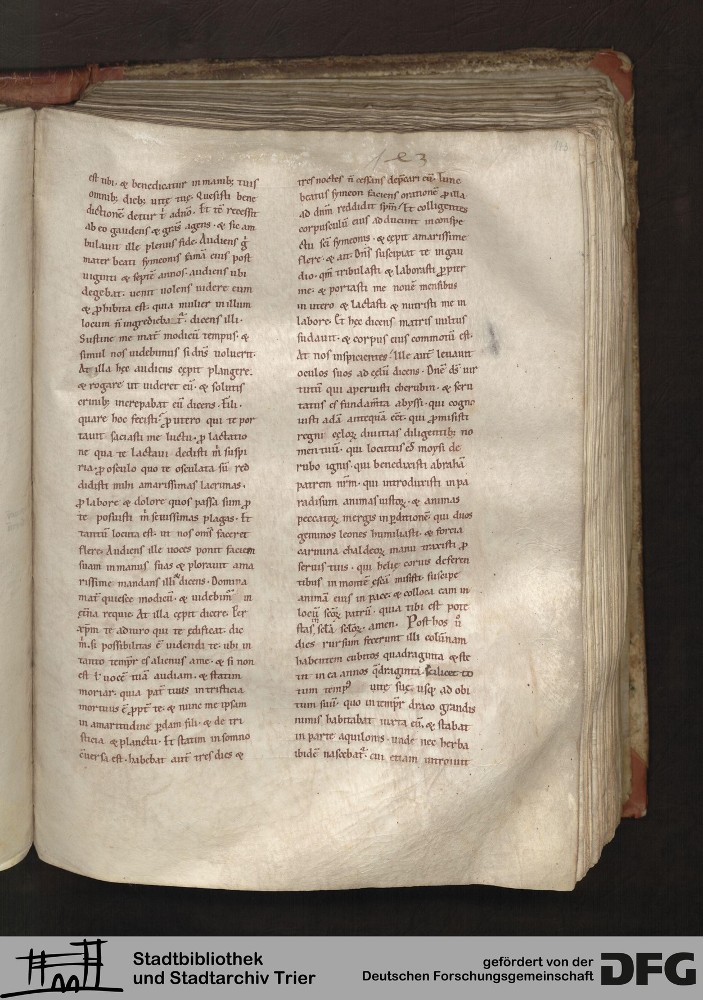 est tibi. & benedicatur in manib; tuis
omnib; dieb; uite tue. Quesisti bene
dictione detur t adno. Et te recessit
ab eo gaudens & gras agens. & sic am
bulauit ille plenus fide. Audiens g
mater beati symeonis fama eius post
uiginti & septe annos. audiens ubi
degebat. uenit uolens uidere eum
& phibita est. quia mulier in illum
locum n ingredieba. dicens illi.
Sustine me mat modicu tempus. &
simul nos uidebimus si dns uoluerit.
At illa hec audiens cepit plangere.
& rogare ut uideret eu. & solutis
crinib; increpabat eu dicens. Fili.
quare hoc fecisti. p utero qui te por
tauit saciasti me luctu. p lactatio
ne qua te lactaui dedisti m suspi
ria. p osculo quo te osculata su red
didisti mihi amarissimas lacrimas.
p labore & dolore quos passa sum p
te posuisti m seuissimas plagas. Et
tantu locuta est. ut nos oms faceret
flere. Audiens ille uoces ponit faciem
suam in manus suas & plorauit ama
rissime mandans illi dicens. Domina
mat quiesce modicu. & uidebim in
etna requie. At illa cepit dicere. Per
xpm te adiuro qui te edificat. die
m. si possibilitas e uidendi te. ubi in
tanto tempr es alienus a me. & si non
est l uoce tua audiam. & statim
moriar. quia pat tuus in tristicia
mortuus e ppt te. & nunc me ipsam
in amaritudine pdam fili. & de tri
sticia & planctu. Et statim in somno
cuersa est. habebat aut tres dies &
tres noctes n cessans depcari eu. tunc
beatus symeon faciens oratione p illa
ad dnm reddidit spm. Et colligentes
corpusculu eius adducunt in conspe
ctu sci symeonis. & cepit amarissime
flere. & ait. Dns suscipiat te in gau
dio. qm tribulasti & laborasti ppter
me. & portasti me noue mensibus
in utero & lactasti & nutristi me in
labore. Et hec dicens matris uultus
sudauit. & corpus eius commotu est.
At nos inspicientes. Ille aut leuauit
oculos suos ad celu dicens. Dne ds uir
tutu qui aperuisti cherubin. & scru
tatus es fundamta abyssi. qui cogno
uisti ada antequa eet. qui pmisisti
regni celor diuitias diligentib; no
men tuu. qui locutus es moysi de
rubo ignis. qui benedixisti abraha
patrem nrm. qui introduxisti in pa
radisum animas iustor. & animas
peccator mergis in pditione. qui duos
geminos leones humiliasti. & fortia
carmina chaldeor manu traxisti p
seruis tuis. qui helie coruis deferen
tibus in monte esca misisti. suscipe
anima eius in pace. & colloca eam in
locu scor patru. quia tibi est pote
stas in scla sclor. amen. Post hos u
dies rursum fecerunt illi colunam
habentem cubitos quadraginta. & ste
tit in ea annos qdraginta. scilicet to
tum temp uite sue. usq; ad obi
tum suu. quo in tempr draco grandis
nimis habitabat iuxta eu. & stabat
in parte aquilonis. unde nec herba
ibide nascebat. cui etiam introiuit
Stadtbibliothek
und Stadtarchiv Trier
gefördert von der
Deutschen Forschungsgemeinschaft
DFG